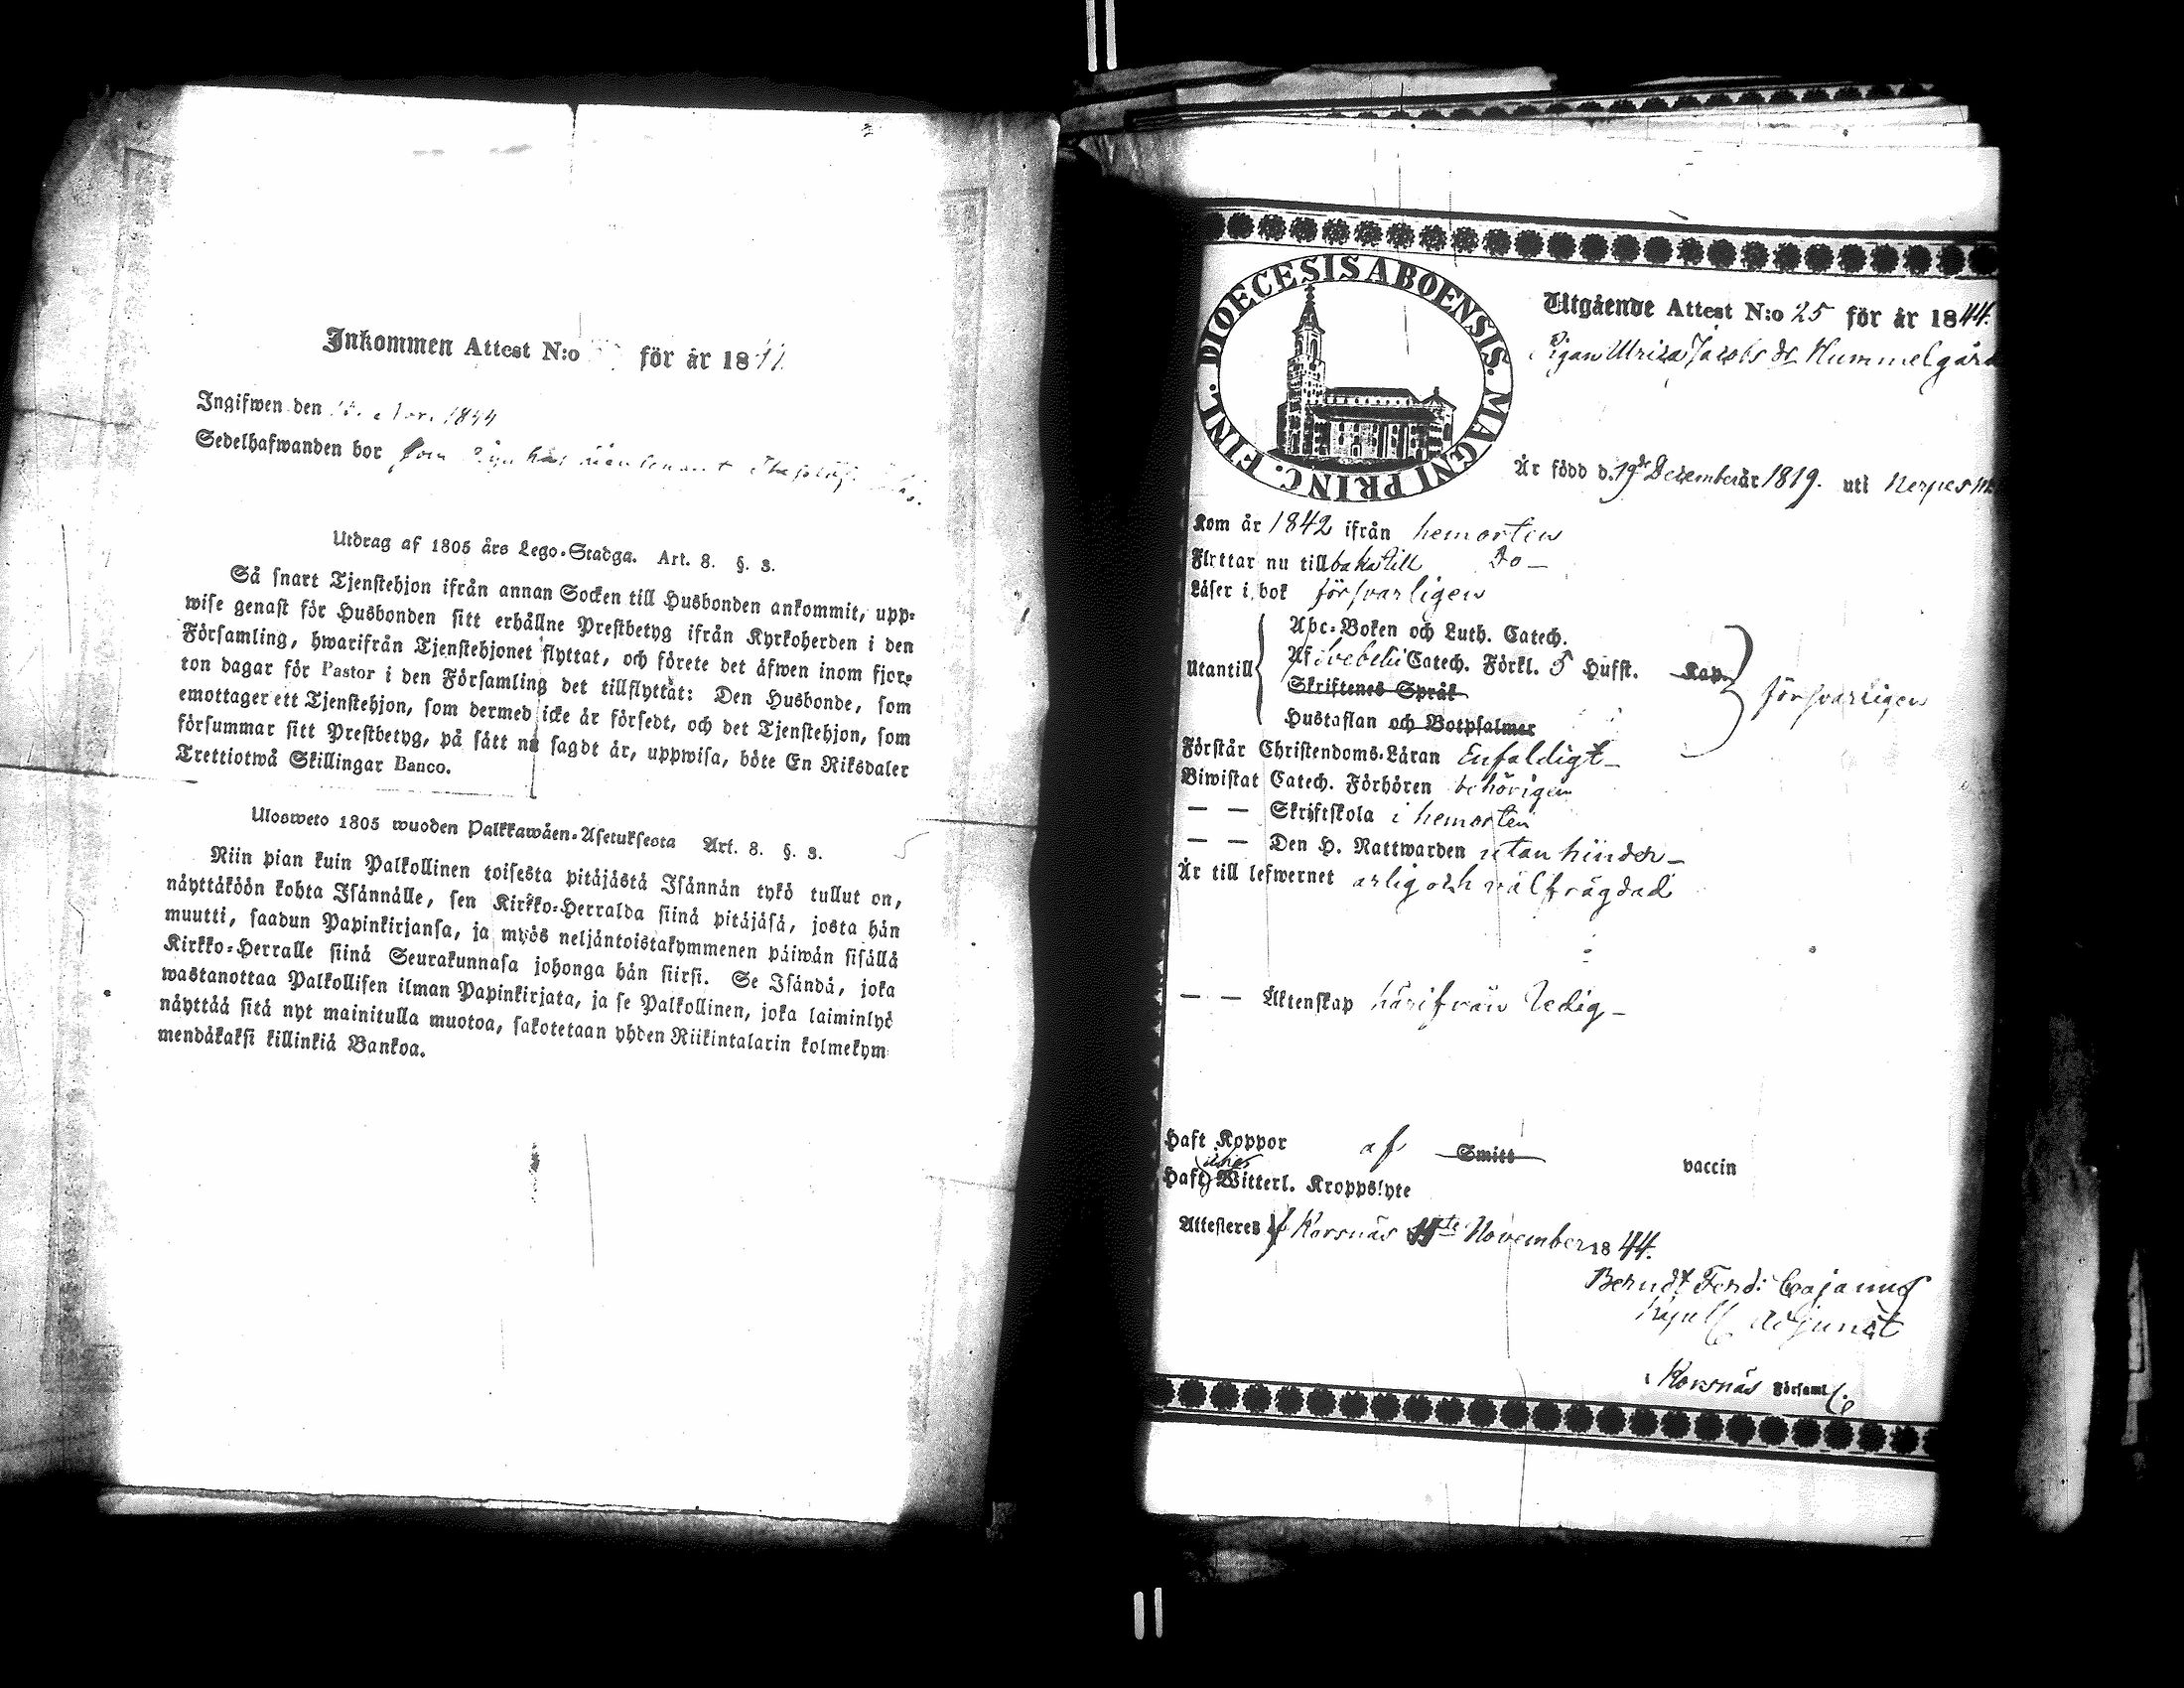 Inkommen Attest N:o för år 18
Ingifwen den Nov. 1844
Sedelhafwanden bor som
Utdrag af 1805 års Lego-Stadga. Art. 8. §. 3.
Så snart Tjenstehjon ifrån annan Socken till Husbonden ankommit, upp-
wise genast för Husbonden sitt erhållne Prestbetyg ifrån Kyrkoherden i den
Församling, hwarifrån Tjenstehjonet flyttat, och förete det äfwen inom fjor-
ton dagar för Pastor i den Församling det tillflyttat: Den Husbonde, som
emottager ett Tjenstehjon, som dermed icke är försedt, och det Tjenstehjon, som
försummar sitt Prestbetyg, på sätt nu sagdt är, uppwisa, böte En Riksdaler
Trettiotwå Skillingar Banco.
Ulosweto 1805 wuoden Palkkawäen-Asetuksesta Art. 8. §. 3.
Niin pian kuin Palkollinen toisesta pitäjästä Isännän tykö tullut on,
näyttäköön kohta Isännälle, sen Kirkko-Herralda siinä pitäjäsä, josta hän
muutti, saadun Papinkirjansa, ja myös neljäntoistakymmenen päiwän sisällä
Kirkko-Herralle siinä Seurakunnasa johonga hän siirsi. Se Isändä, joka
wastanottaa Palkollisen ilman Papinkirjata, ja se Palkollinen, joka laiminlyö
näyttää sitä nyt mainitulla muotoa, sakotetaan yhden Riikintalarin kolmekym
mendäkaksi killinkiä Bankoa.
DIOECESIS ABOENSIS. MAGNI PRINC. FINL.
Utgående Attest N:o 25 för år 1844.
Pigan Ulrica Jacobs dr Hummelgård
Är född d. 19de December år 1819. uti Nerpes
Kom år 1842 ifrån hemorten
Flyttar nu till baka till Do
Läser i bok försvarligen
Utantill
Abc-Boken och Luth. Catech.
Af Svebelii Catech. Förkl. 5 Hufst. Kap.
Skriftenes Språk
Hustaflan och Botpsalmer
försvarligen
Förstår Christendoms-Läran Enfaldigt
Biwistat Catech. Förhören behörigen
— — Skriftskola i hemorten
— — Den H. Nattwarden utan hinder
Är till lefwernet arlig och välfrägdad
— — Äktenskap härifrån ledig
Haft Koppor af Smitt vaccin
Haft Witterl. Kroppslyte
Attesteres Korsnäs November 1844.
Berndt Ferd: Cajanus
Adjunct
Korsnäs Församl.